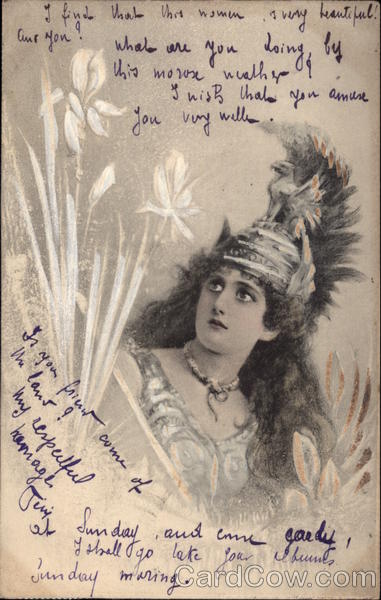 I find that this women is very beautiful!
And you? what are you doing by
this morose weather?
I wish that you amuse
you very welle.
Is your friend come of
the land?
My respectful
homage
at Sunday, and come early,
I shall go late your
Sunday morning.
CardCow.com